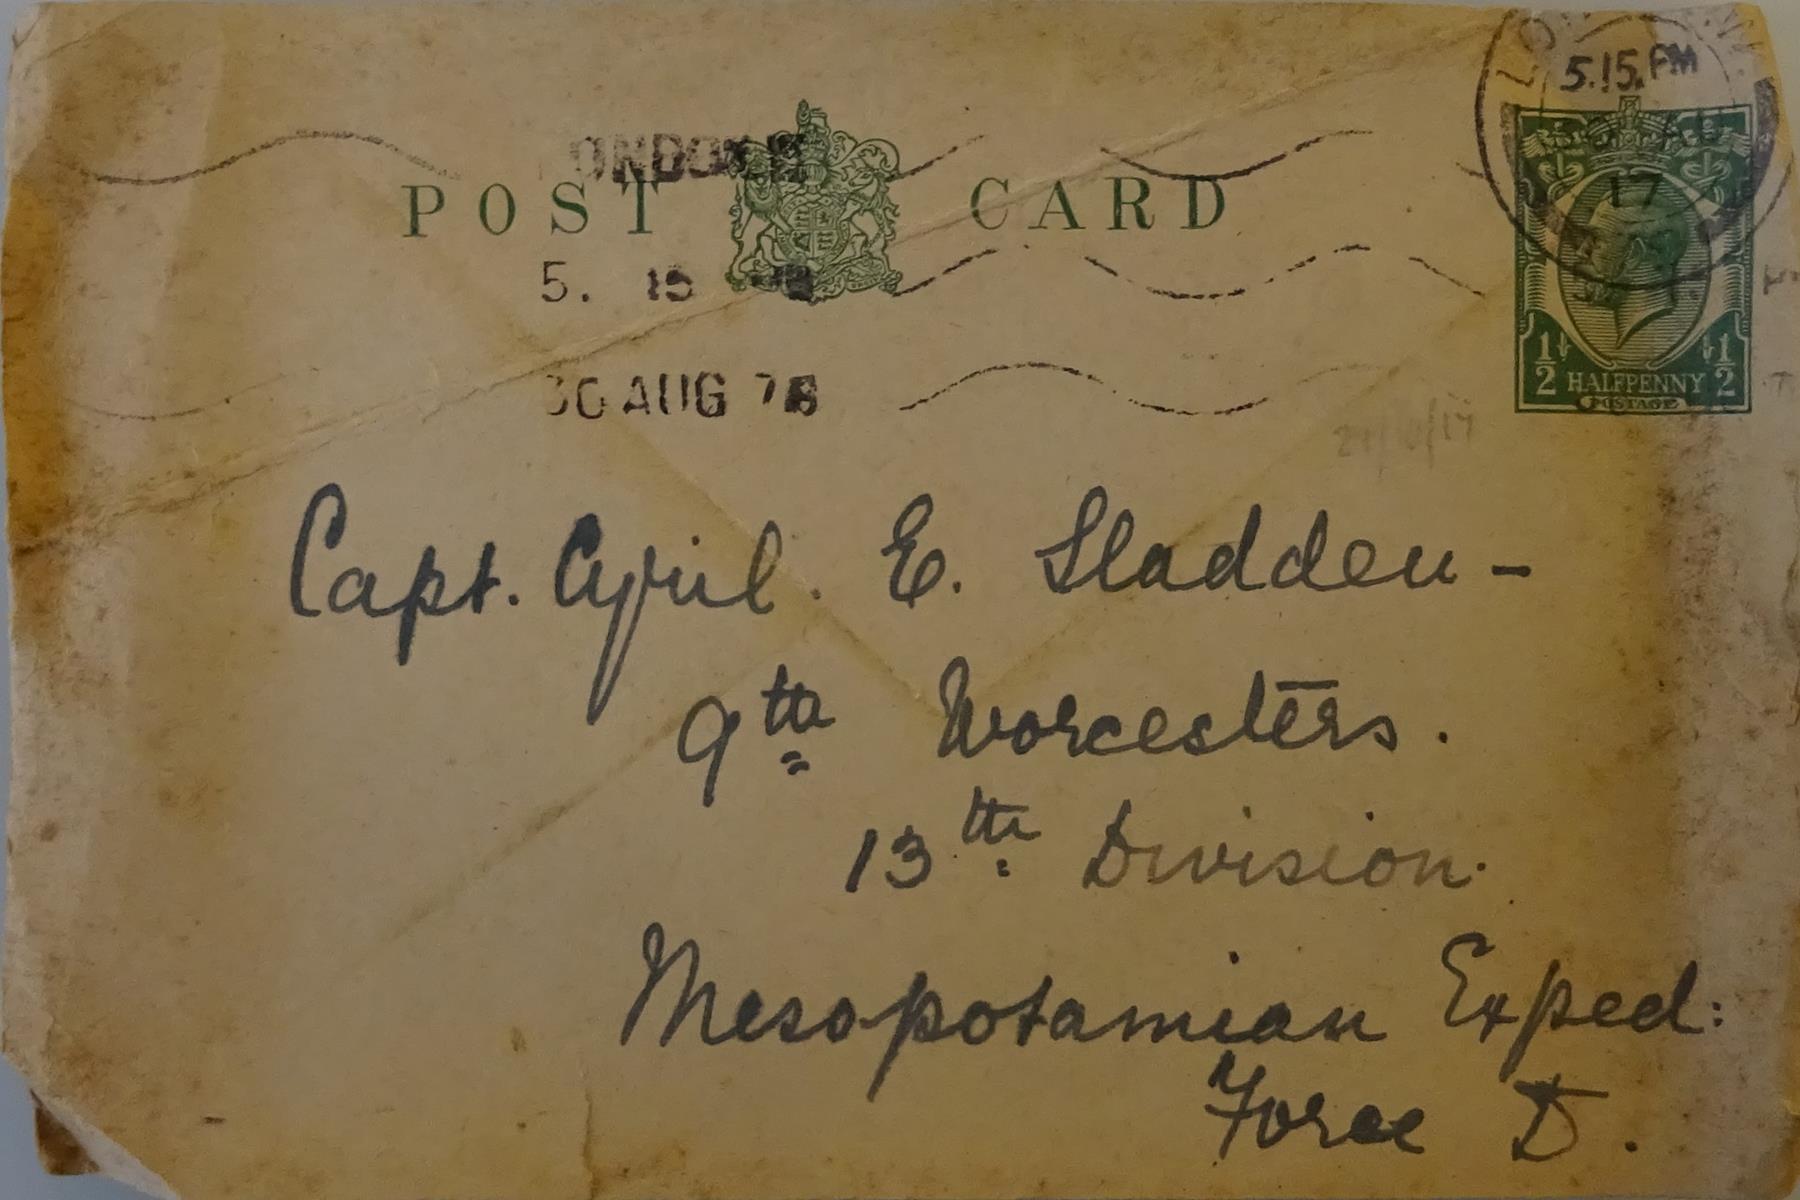 5.15.PM
POST CARD
5. 15
17
AUG
½ HALFPENNY ½
POSTAGE
Capt. Cyril. E. Sladden -
9th Worcesters.
13th Division.
Mesopotamian Exped:
Force D.